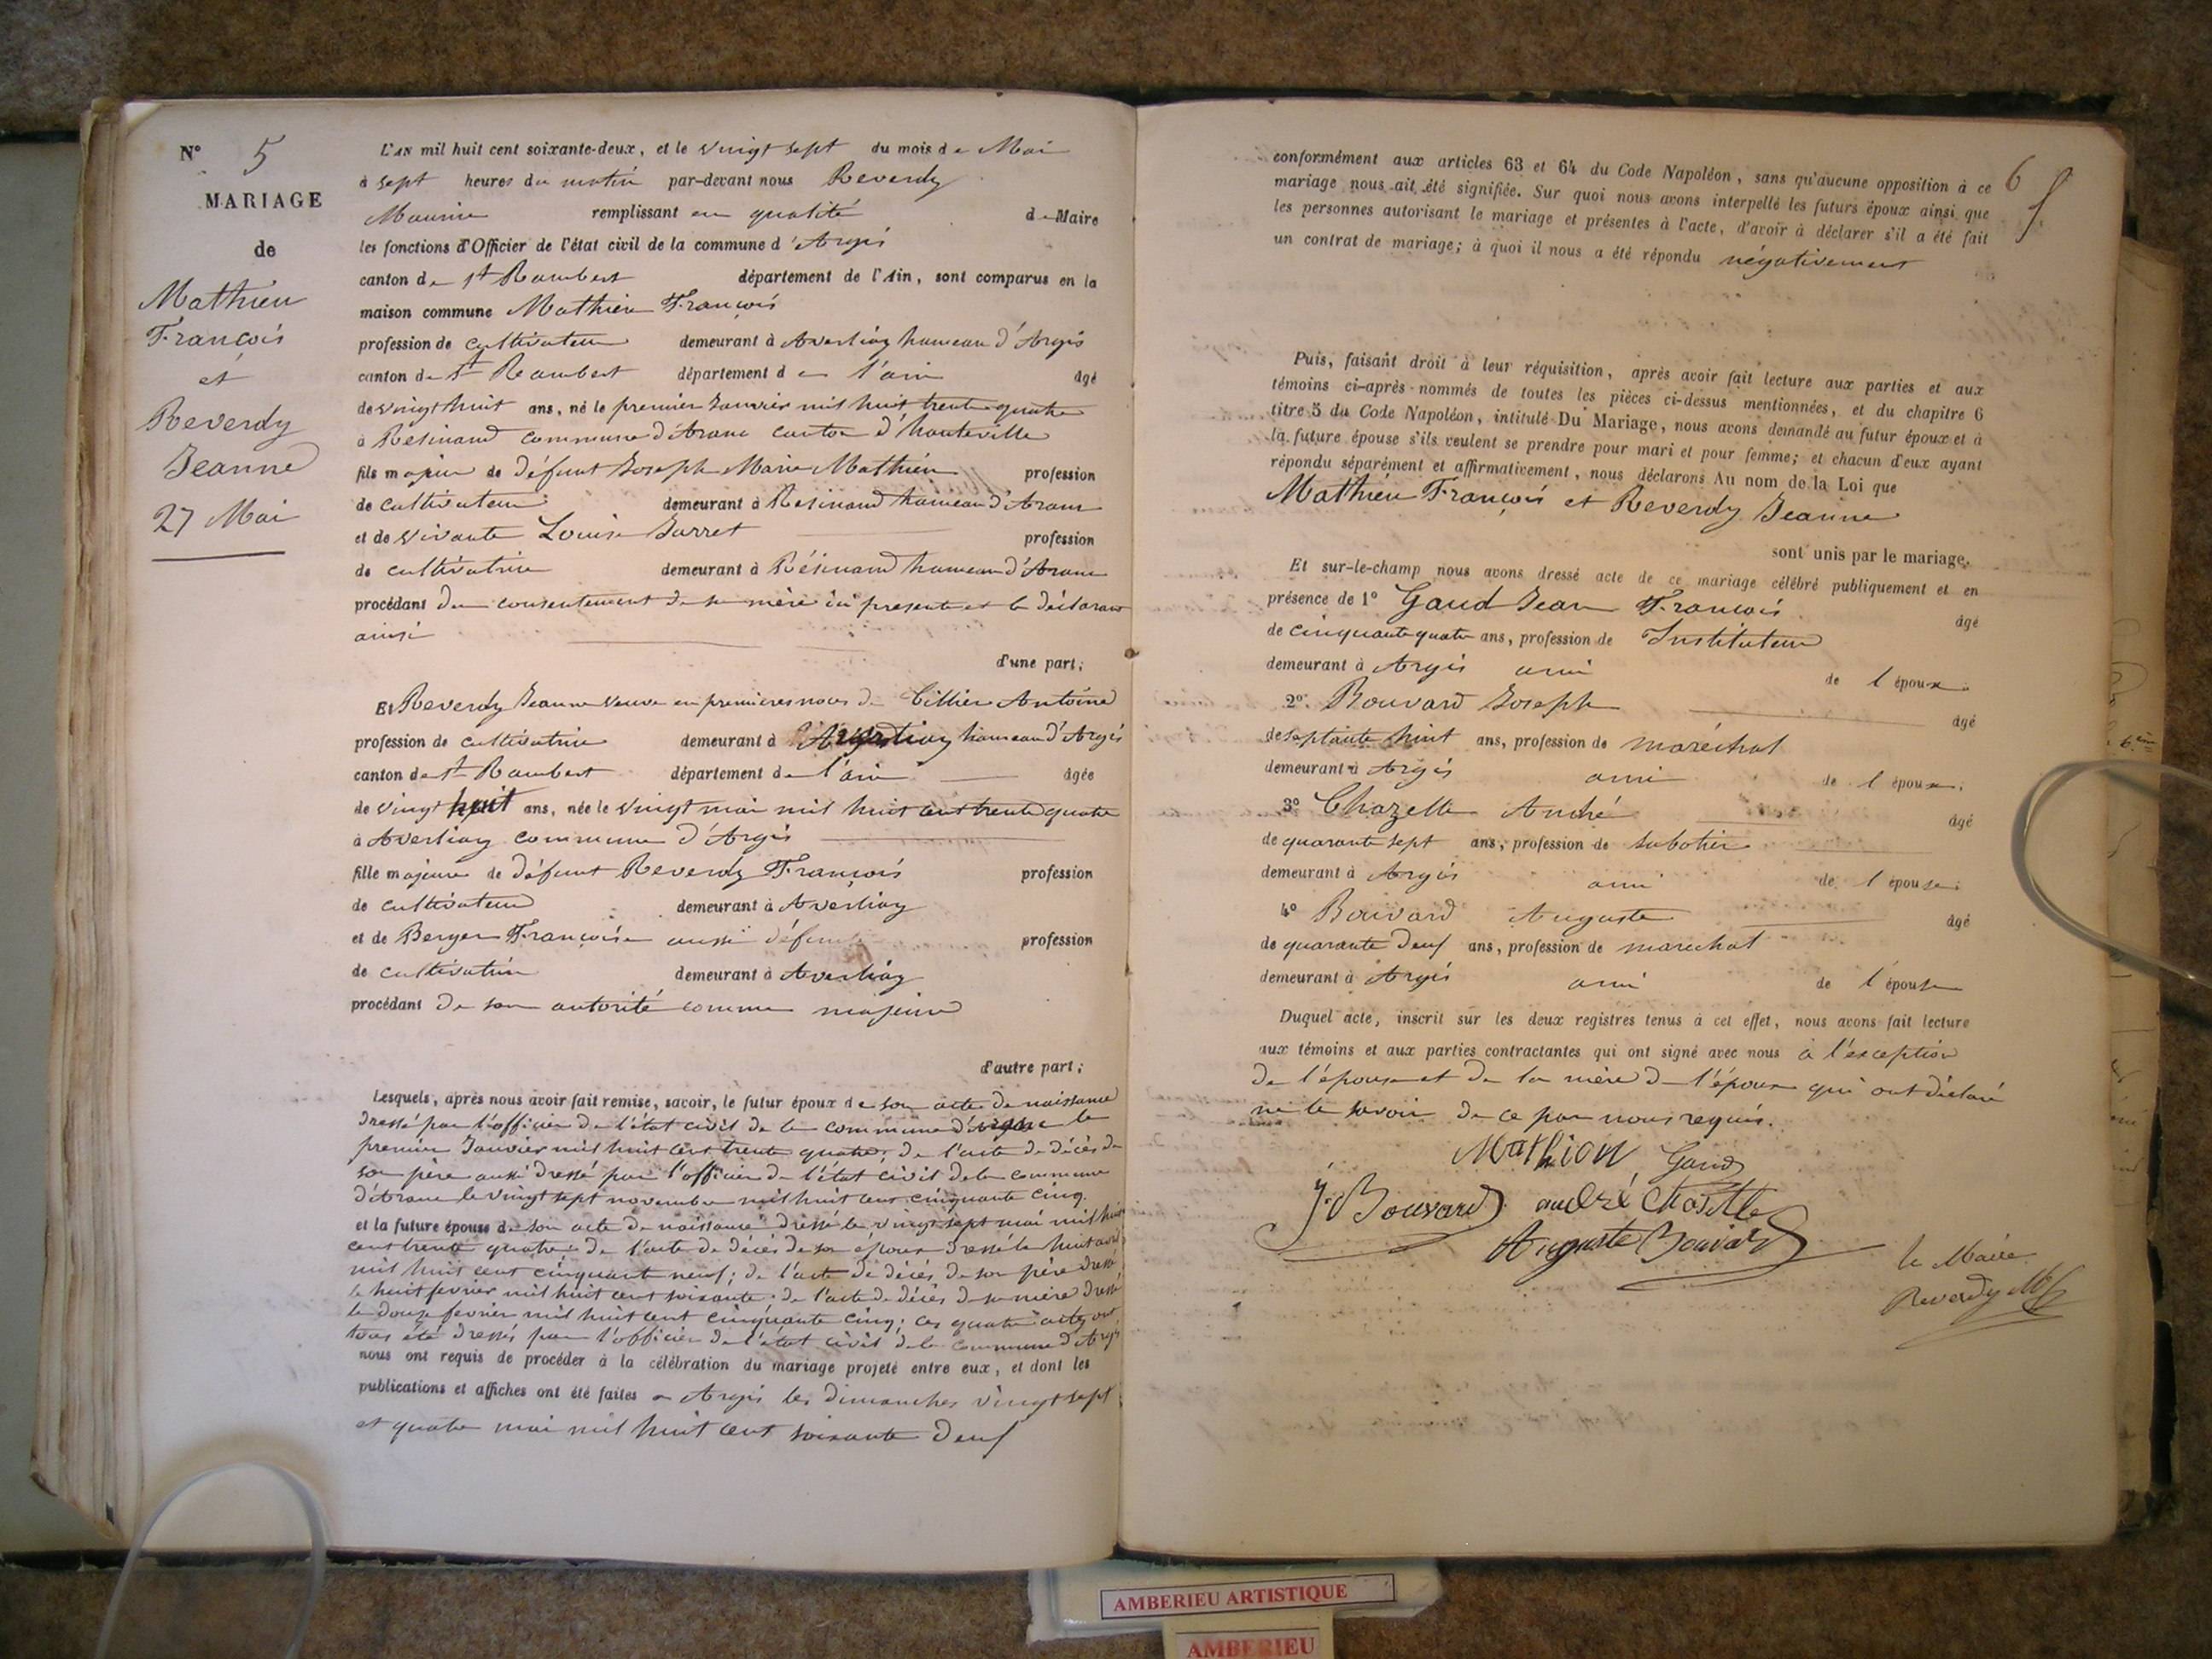 N° 5
MARIAGE
de
Mathieu
François
et
Reverdy
Jeanne
27 Mai
L'AN mil huit cent soixante-deux, et le vingt sept du mois de Mai
à sept heures du matin par-devant nous Reverdy
Maurice remplissant en qualité de Maire
les fonctions d'Officier de l'état civil de la commune d'Argis
canton de st Rambert département de l'Ain, sont comparus en la
maison commune Mathieu François
profession de cultivateur demeurant à Averliaz hameau d'Argis
canton de st Rambert département de l'ain âgé
de vingt huit ans, né le premier Janvier mil huit trente quatre
à Résinand commune d'Aranc canton d'hauteville
fils majeur de défunt Joseph Marie Mathieu profession
de cultivateur demeurant à Résinand hameau d'Aranc
et de vivante Louise Jarret profession
de cultivatrice demeurant à Résinand hameau d'Aranc
procédant du consentement de sa mère ici presente et le déclarant
ainsi
d'une part;
Et Reverdy Jeanne veuve en premieres noces de Tillier Antoine
profession de cultivatrice demeurant à Averliaz hameau d'Argis
canton de st Rambert département de l'ain âgée
de vingt huit ans, née le vingt mai mil huit cent trente quatre
à Averliaz commune d'Argis
fille majeure de défunt Reverdy François profession
de cultivateur demeurant à Averliaz
et de Berger Françoise aussi défunte profession
de cultivatrice demeurant à Averliaz
procédant de son autorité comme majeure
d'autre part;
Lesquels, après nous avoir fait remise, savoir, le futur époux de son acte de naissance
dressé par l'officier de l'état civil de la commune d'Aranc le
premier Janvier mil huit cent trente quatre; de l'acte de décès de
son père aussi dressé par l'officier de l'état civil de la commune
d'Aranc le vingt sept novembre mil huit cent cinquante cinq.
et la future épouse de son acte de naissance dressé le vingt sept mai mil huit
cent trente quatre: de l'acte de décès de son époux dressé le huit avril
mil huit cent cinquante neuf; de l'acte de décés de son père dressé
le huit fevrier mil huit cent soixante: de l'acte de décès de sa mère dressé
le douze fevrier mil huit cent cinquante cinq; ces quatre actes ont
tous été dressés par l'officier de l'état civil de la commune d'Argis
nous ont requis de procéder à la célébration du mariage projeté entre eux, et dont les
publications et affiches ont été faites a Argis les dimanches vingt sept
et quatre mai mil huit cent soixante deux
6
conformément aux articles 63 et 64 du Code Napoléon, sans qu'aucune opposition à ce
mariage nous ait été signifiée. Sur quoi nous avons interpellé les futurs époux ainsi que
les personnes autorisant le mariage et présentes à l'acte, d'avoir à déclarer s'il a été fait
un contrat de mariage; à quoi il nous a été répondu négativement
Puis, faisant droit à leur réquisition, après avoir fait lecture aux parties et aux
témoins ci-après nommés de toutes les pièces ci-dessus mentionnées, et du chapitre 6
titre 5 du Code Napoléon, intitulé Du Mariage, nous avons demandé au futur époux et à
la future épouse s'ils veulent se prendre pour mari et pour femme; et chacun d'eux ayant
répondu séparément et affirmativement, nous déclarons Au nom de la Loi que
Mathieu François et Reverdy Jeanne
sont unis par le mariage.
Et sur-le-champ nous avons dressé acte de ce mariage célébré publiquement et en
présence de 1° Gaud Jean François âgé
de cinquante quatre ans, profession de Instituteur
demeurant à Argis ami de l'époux.
2°. Bouvard Joseph âgé
de septante huit ans, profession de maréchal
demeurant à Argis ami de l'époux.
3° Chazelle André âgé
de quarante sept ans, profession de sabotier
demeurant à Argis ami de l'épouse.
4° Bouvard Auguste âgé
de quarante deux ans, profession de marechal
demeurant à Argis ami de l'épouse
Duquel acte, inscrit sur les deux registres tenus à cet effet, nous avons fait lecture
aux témoins et aux parties contractantes qui ont signé avec nous à l'exception
de l'épouse et de la mère de l'époux qui ont déclaré
ne le savoir de ce par nous requis.
Mathion Gaud
J. Bouvard andré Chaselle
Auguste Bouvard
le Maire
Reverdy M
AMBERIEU ARTISTIQUE
AMBERIEU